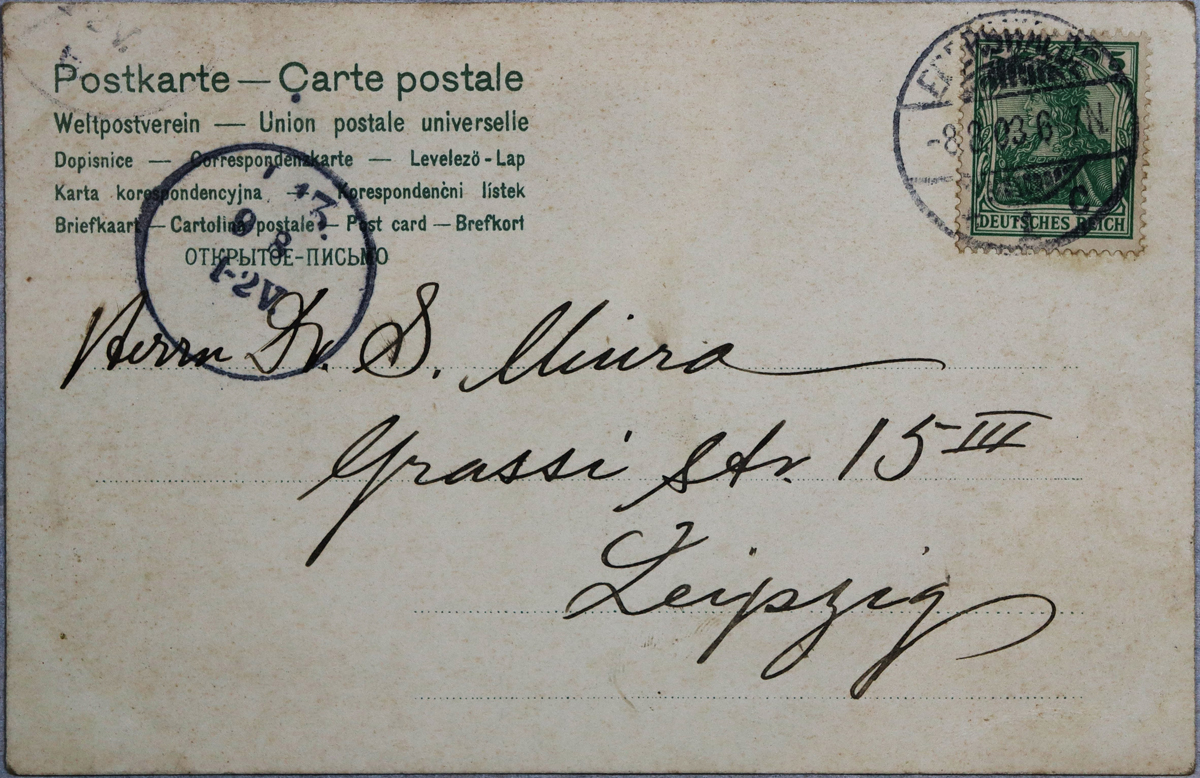 Postkarte — Carte postale
Weltpostverein — Union postale universelle
Dopisnice — Correspondenzkarte — Levelező-Lap
Karta korespondencyjna — Korespondenčni listek
Briefkaart — Cartolina postale — Post card — Brefkort
ОТКРЫТОЕ-ПИСЬМО
9 8
1-2V.
EBERSWALDE
-8.8.03.6-7N.
5
DEUTSCHES REICH
Herrn Dr. S. Miura
Grassi Str. 15 III
Leipzig